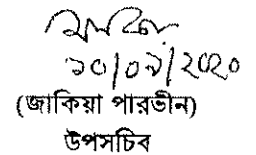 ১০/০৯/২০২০
(জাকিয়া পারভীন)
উপসচিব